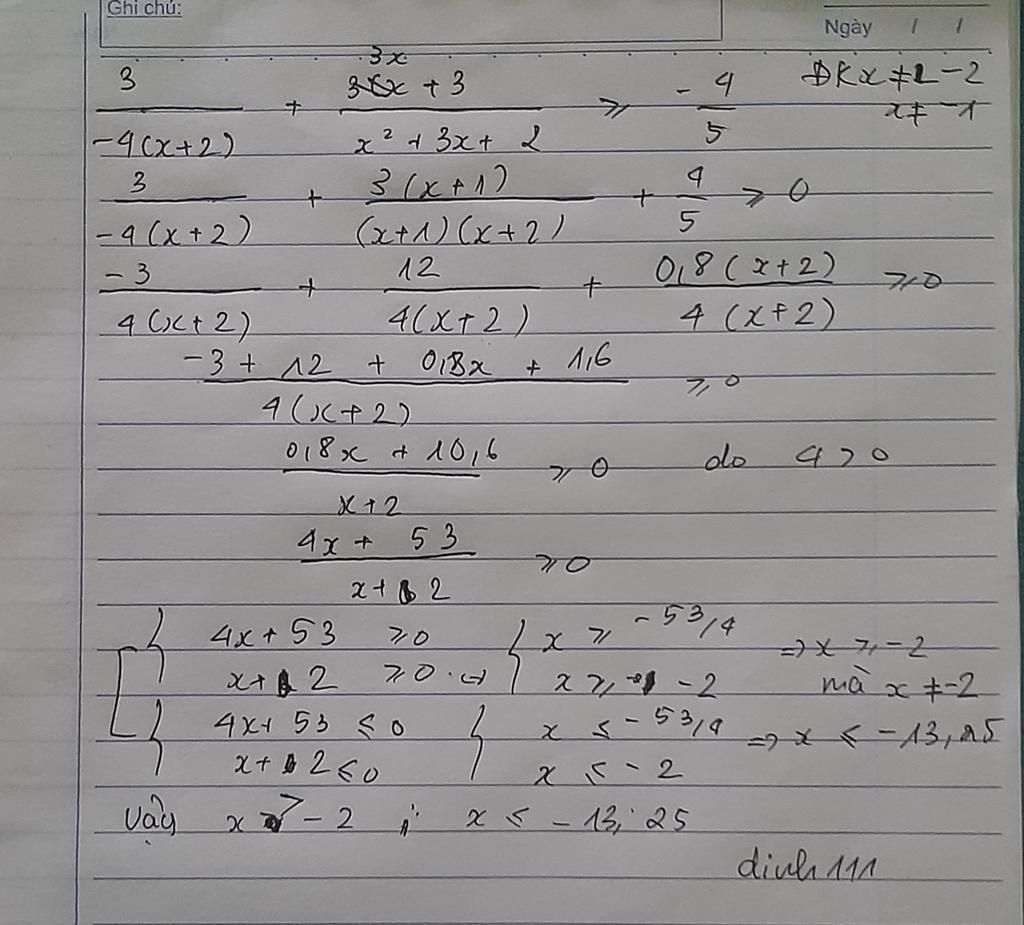 Ghi chú:
Ngày / /
3/(-4(x+2)) + (3x + 3)/(x² + 3x + 2) ⩾ -4/5 ĐK x ≠ -2
x ≠ -1
3/(-4(x+2)) + 3(x+1)/((x+1)(x+2)) + 4/5 ⩾ 0
-3/(4(x+2)) + 12/(4(x+2)) + 0,8(x+2)/(4(x+2)) ⩾ 0
(-3 + 12 + 0,8x + 1,6)/(4(x+2)) ⩾ 0
(0,8x + 10,6)/(x+2) ⩾ 0 do 4 > 0
(4x + 53)/(x+2) ⩾ 0
[ { 4x + 53 ⩾ 0 { x ⩾ -53/4 => x ⩾ -2
x + 2 ⩾ 0 <-> x ⩾ -2 mà x ≠ -2
{ 4x + 53 ⩽ 0 { x ⩽ -53/4 => x ⩽ -13,25
x + 2 ⩽ 0 x ⩽ -2
Vậy x > -2 ; x ⩽ -13,25
dinh 111